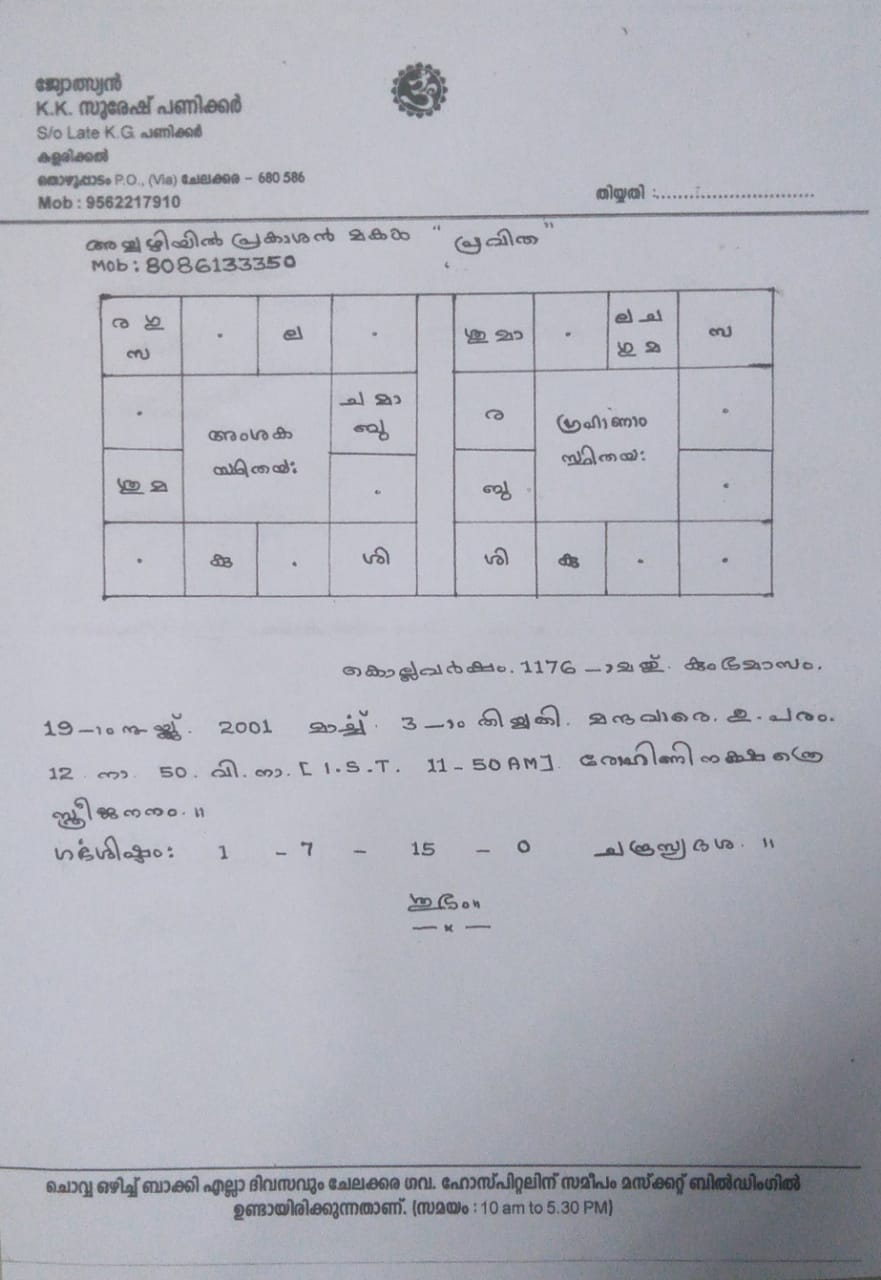 ജ്യോത്സ്യൻ
K.K. സുരേഷ് പണിക്കർ
S/o Late K.G. പണിക്കർ
കളരിക്കൽ
തൊഴുപ്പാടം P.O., (Via) ചേലക്കര – 680 586
Mob : 9562217910
തിയ്യതി :............................
പ്രകാശൻ മകൾ " പ്രവിത "
Mob : 8086133350
ര ഗു സ . ല . ശു മാ . ല ച ഗു മ സ
. അംശക സ്ഥിതയഃ ച മാ ബു ര ഗ്രഹാണാം സ്ഥിതയഃ .
ശു മ . ബു .
. കു . ശി ശി കു . .
കൊല്ലവർഷം. 1176 –ാമത്. കുംഭമാസം.
19 –ാം നു 2001 മാർച്ച്. 3 –ാം തിയ്യതി. മന്ദവാരെ. ഉ. പരം.
12 നാ 50. വി. നാ. [ I.S.T. 11 – 50 AM]. രോഹിണി നക്ഷത്രെ
സ്ത്രീ ജനനം. ॥
ഗർഭശിഷ്ടം: 1 – 7 – 15 – 0 ചന്ദ്രസ്യ ദശ. ॥
ശുഭം॥
— × —
ചൊവ്വ ഒഴിച്ച് ബാക്കി എല്ലാ ദിവസവും ചേലക്കര ഗവ. ഹോസ്പിറ്റലിന് സമീപം മസ്ക്കറ്റ് ബിൽഡിംഗിൽ
ഉണ്ടായിരിക്കുന്നതാണ്. (സമയം : 10 am to 5.30 PM)